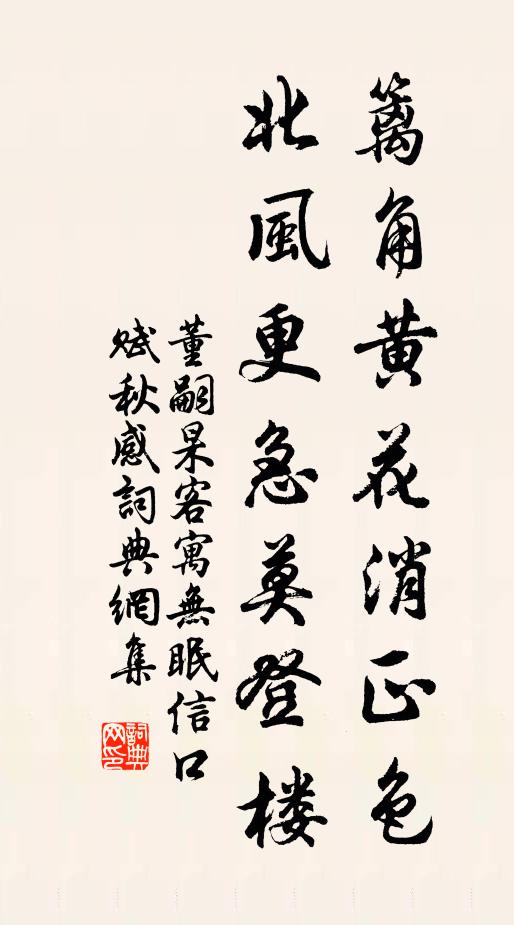 籬角黃花消正色
北風更急莫登楼
董嗣杲客寓無眠信口
賦秋感詞典網集
詞典网印